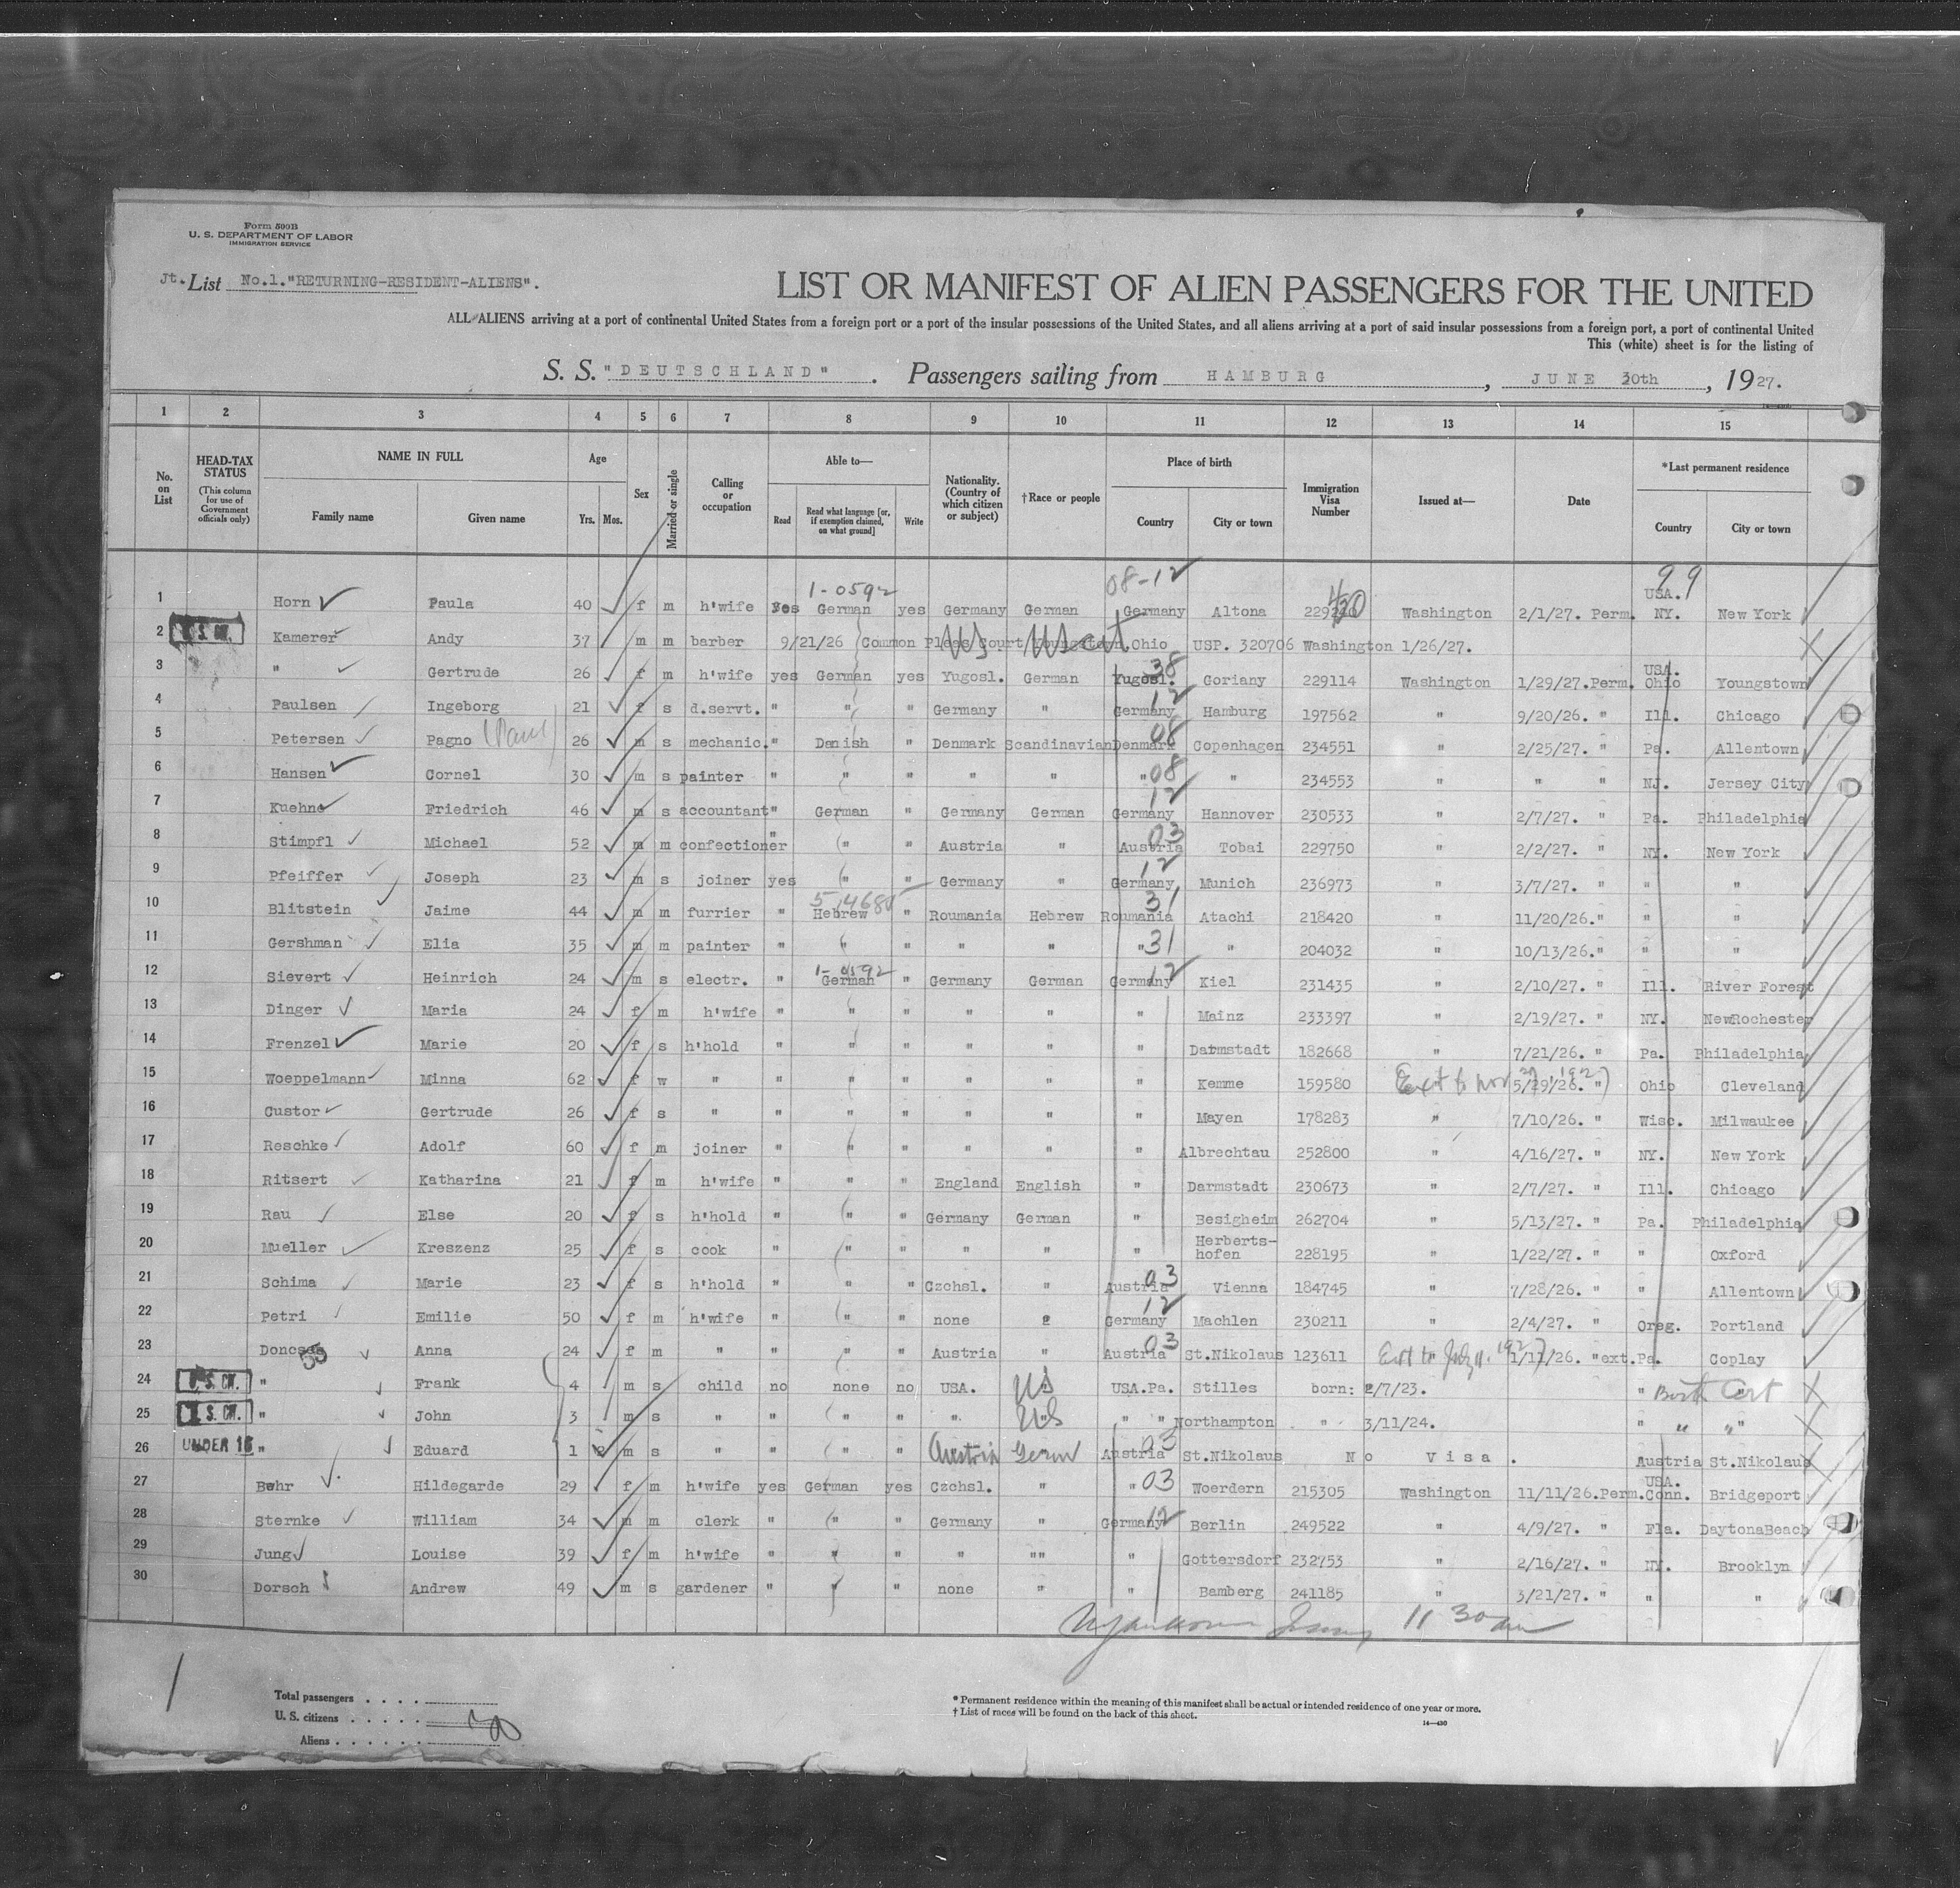 Form 500B
U. S. DEPARTMENT OF LABOR
IMMIGRATION SERVICE
Jt. List No.1."RETURNING-RESIDENT-ALIENS".
LIST OR MANIFEST OF ALIEN PASSENGERS FOR THE UNITED
ALL ALIENS arriving at a port of continental United States from a foreign port or a port of the insular possessions of the United States, and all aliens arriving at a port of said insular possessions from a foreign port, a port of continental United
This (white) sheet is for the listing of
S. S. "DEUTSCHLAND". Passengers sailing from HAMBURG, JUNE 30th, 1927.
1 2 3 4 5 6 7 8 9 10 11 12 13 14 15
No. on List
HEAD-TAX STATUS (This column for use of Government officials only)
NAME IN FULL Family name Given name
Age Yrs. Mos.
Sex
Married or single
Calling or occupation
Able to— Read Read what language [or, if exemption claimed, on what ground] Write
Nationality. (Country of which citizen or subject)
†Race or people
Place of birth Country City or town
Immigration Visa Number
Issued at—
Date
*Last permanent residence Country City or town
1-0592 08-12 99
1 Horn Paula 40 f m h'wife yes German yes Germany German Germany Altona Washington 2/1/27. Perm. USA. NY. New York
2 U.S. CIT. Kamerer Andy 37 m m barber 9/21/26 Common Pleas Court Youngstown, Ohio USP. 320706 Washington 1/26/27.
3 " Gertrude 26 f m h'wife yes German yes Yugosl. German Yugosl. 38 Goriany 229114 Washington 1/29/27. Perm. USA. Ohio Youngstown
4 Paulsen Ingeborg 21 f s d.servt. " " " Germany " Germany 12 Hamburg 197562 " 9/20/26. " Ill. Chicago
5 Petersen Pagno (Paul) 26 m s mechanic. " Danish " Denmark Scandinavian Denmark 08 Copenhagen 234551 " 2/25/27. " Pa. Allentown
6 Hansen Cornel 30 m s painter " " " " " " 08 " 234553 " " " NJ. Jersey City
7 Kuehne Friedrich 46 m s accountant " German " Germany German Germany 12 Hannover 230533 " 2/7/27. " Pa. Philadelphia
8 Stimpfl Michael 52 m m confectioner " " " Austria " Austria 03 Tobai 229750 " 2/2/27. " NY. New York
9 Pfeiffer Joseph 23 m s joiner yes " " Germany " Germany 12 Munich 236973 " 3/7/27. " " "
10 Blitstein Jaime 44 m m furrier " Hebrew " Roumania Hebrew Roumania 31 Atachi 218420 " 11/20/26. " " "
11 Gershman Elia 35 m m painter " " " " " " 31 " 204032 " 10/13/26. " " "
12 Sievert Heinrich 24 m s electr. " 1-0592 German " Germany German Germany 12 Kiel 231435 " 2/10/27. " Ill. River Forest
13 Dinger Maria 24 f m h'wife " " " " " " Mainz 233397 " 2/19/27. " NY. NewRochester
14 Frenzel Marie 20 f s h'hold " " " " " " Darmstadt 182668 " 7/21/26. " Pa. Philadelphia
15 Woeppelmann Minna 62 f w " " " " " " " Kemme 159580 5/29/26. " Ohio Cleveland
16 Custor Gertrude 26 f s " " " " " " " Mayen 178283 " 7/10/26. " Wisc. Milwaukee
17 Reschke Adolf 60 f m joiner " " " " " " Albrechtau 252800 " 4/16/27. " NY. New York
18 Ritsert Katharina 21 f m h'wife " " " England English " Darmstadt 230673 " 2/7/27. " Ill. Chicago
19 Rau Else 20 f s h'hold " " " Germany German " Besigheim 262704 " 5/13/27. " Pa. Philadelphia
20 Mueller Kreszenz 25 f s cook " " " " " " Herberts-hofen 228195 " 1/22/27. " " Oxford
21 Schima Marie 23 f s h'hold " " " Czchsl. " Austria 03 Vienna 184745 " 7/28/26. " " Allentown
22 Petri Emilie 50 f m h'wife " " " none Germany 12 Machlen 230211 " 2/4/27. " Oreg. Portland
23 Anna 24 f m " " " " Austria " Austria 03 St.Nikolaus 123611 Ext to July 11. 1927 "ext. Pa. Coplay
24 U.S. CIT. " Frank 4 m s child no none no USA. US USA.Pa. Stilles born: 2/7/23. " Birth Cert
25 U.S. CIT. " John 3 m s " " " " " US " " Northampton " 3/11/24. " " "
26 UNDER 16 " Eduard 1 m s " " " " Austria Germ Austria 03 St.Nikolaus No Visa. Austria St.Nikolaus
27 Behr Hildegarde 29 f m h'wife yes German yes Czchsl. " " 03 Woerdern 215305 Washington 11/11/26. Perm. USA. Conn. Bridgeport
28 Sternke William 34 m m clerk " " " Germany " Germany 12 Berlin 249522 " 4/9/27. " Fla. DaytonaBeach
29 Jung Louise 39 f m h'wife " " " " "" " Gottersdorf 232753 " 2/16/27. " NY. Brooklyn
30 Dorsch Andrew 49 m s gardener " " " none " " Bamberg 241185 " 3/21/27. " " "
11 30 am
Total passengers
U. S. citizens
Aliens
* Permanent residence within the meaning of this manifest shall be actual or intended residence of one year or more.
† List of races will be found on the back of this sheet.
14—430